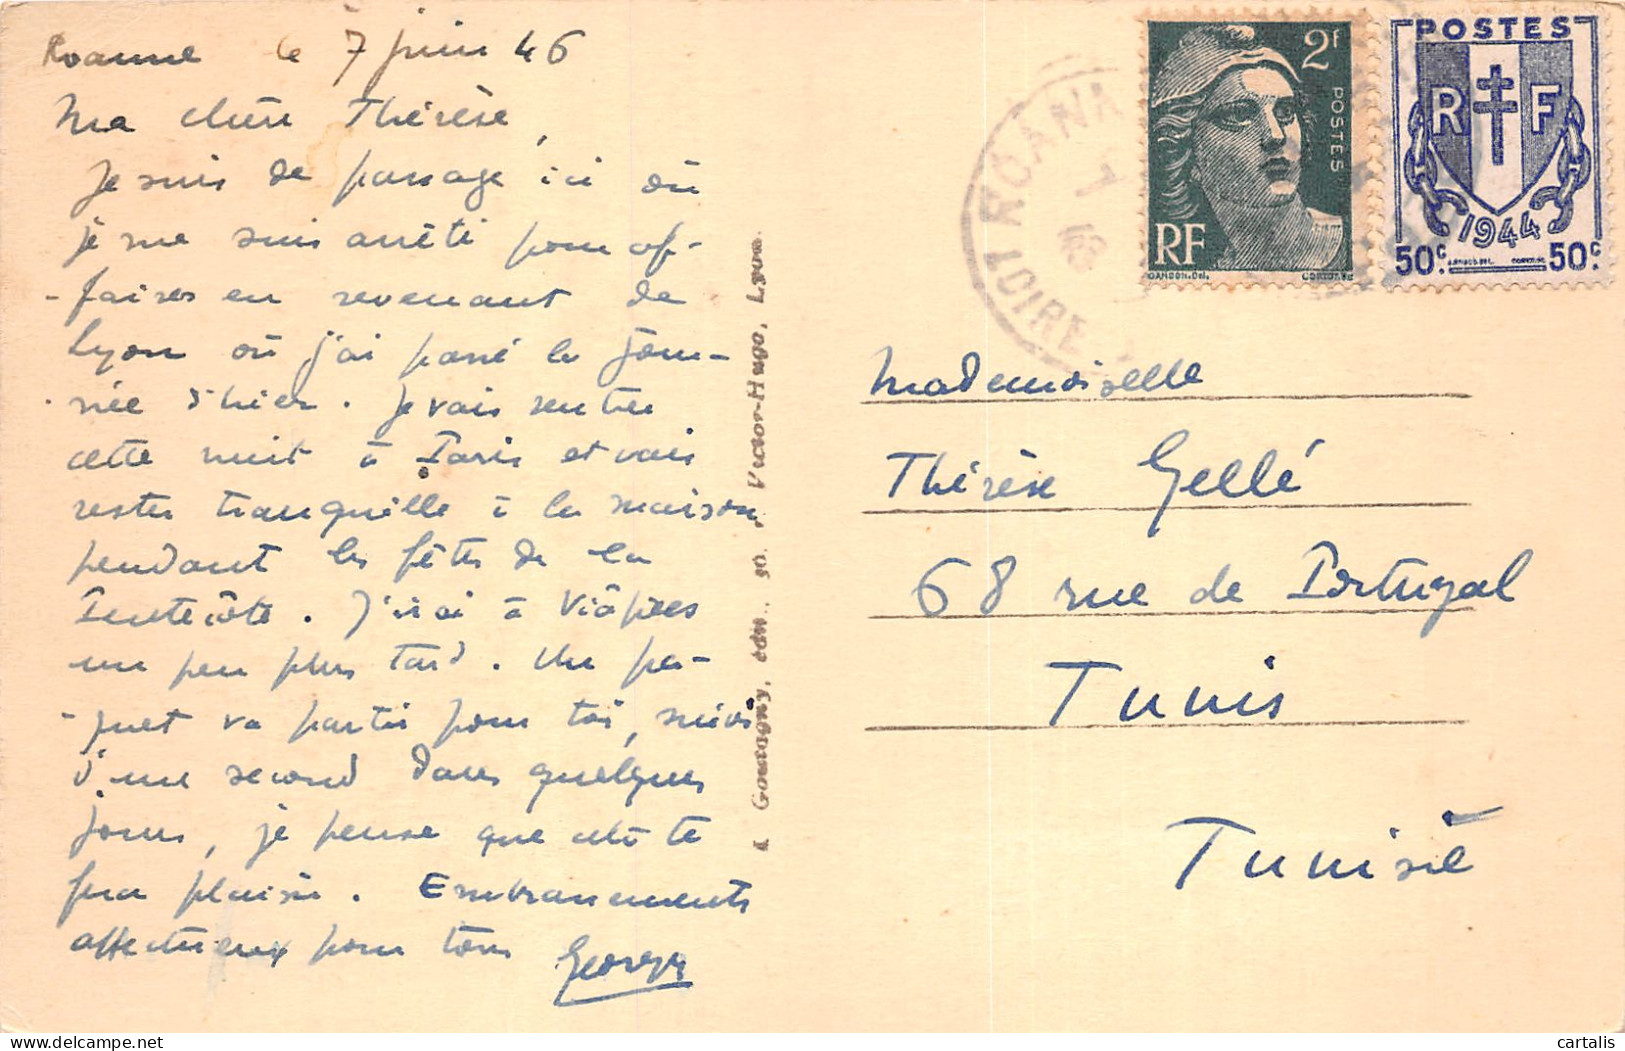 Roanne le 7 juin 46
Ma chère Thérèse,
Je suis de passage ici où
je me suis arrêté pour af-
-faires en revenant de
Lyon où j'ai passé la jour-
née d'hier. Je vais rentrer
cette nuit à Paris et vais
rester tranquille à la maison
pendant les fêtes de la
Pentecôte. J'irai à Viâpres
un peu plus tard. Un pa-
-quet va partir pour toi, suivi
d'une second dans quelques
jours, je pense que cela te
fera plaisir. Embrassements
affectueux pour tous
Georges
Goutagny, édit., 50, Victor-Hugo, Lyon.
ROANNE
7
18
LOIRE
2f
POSTES
RF
GANDON.Del.
CORTOT.SC
POSTES
R F
1944
50c. 50c.
Mademoiselle
Thérèse Gellé
68 rue de Portugal
Tunis
Tunisie
cartalis
delcampe.net